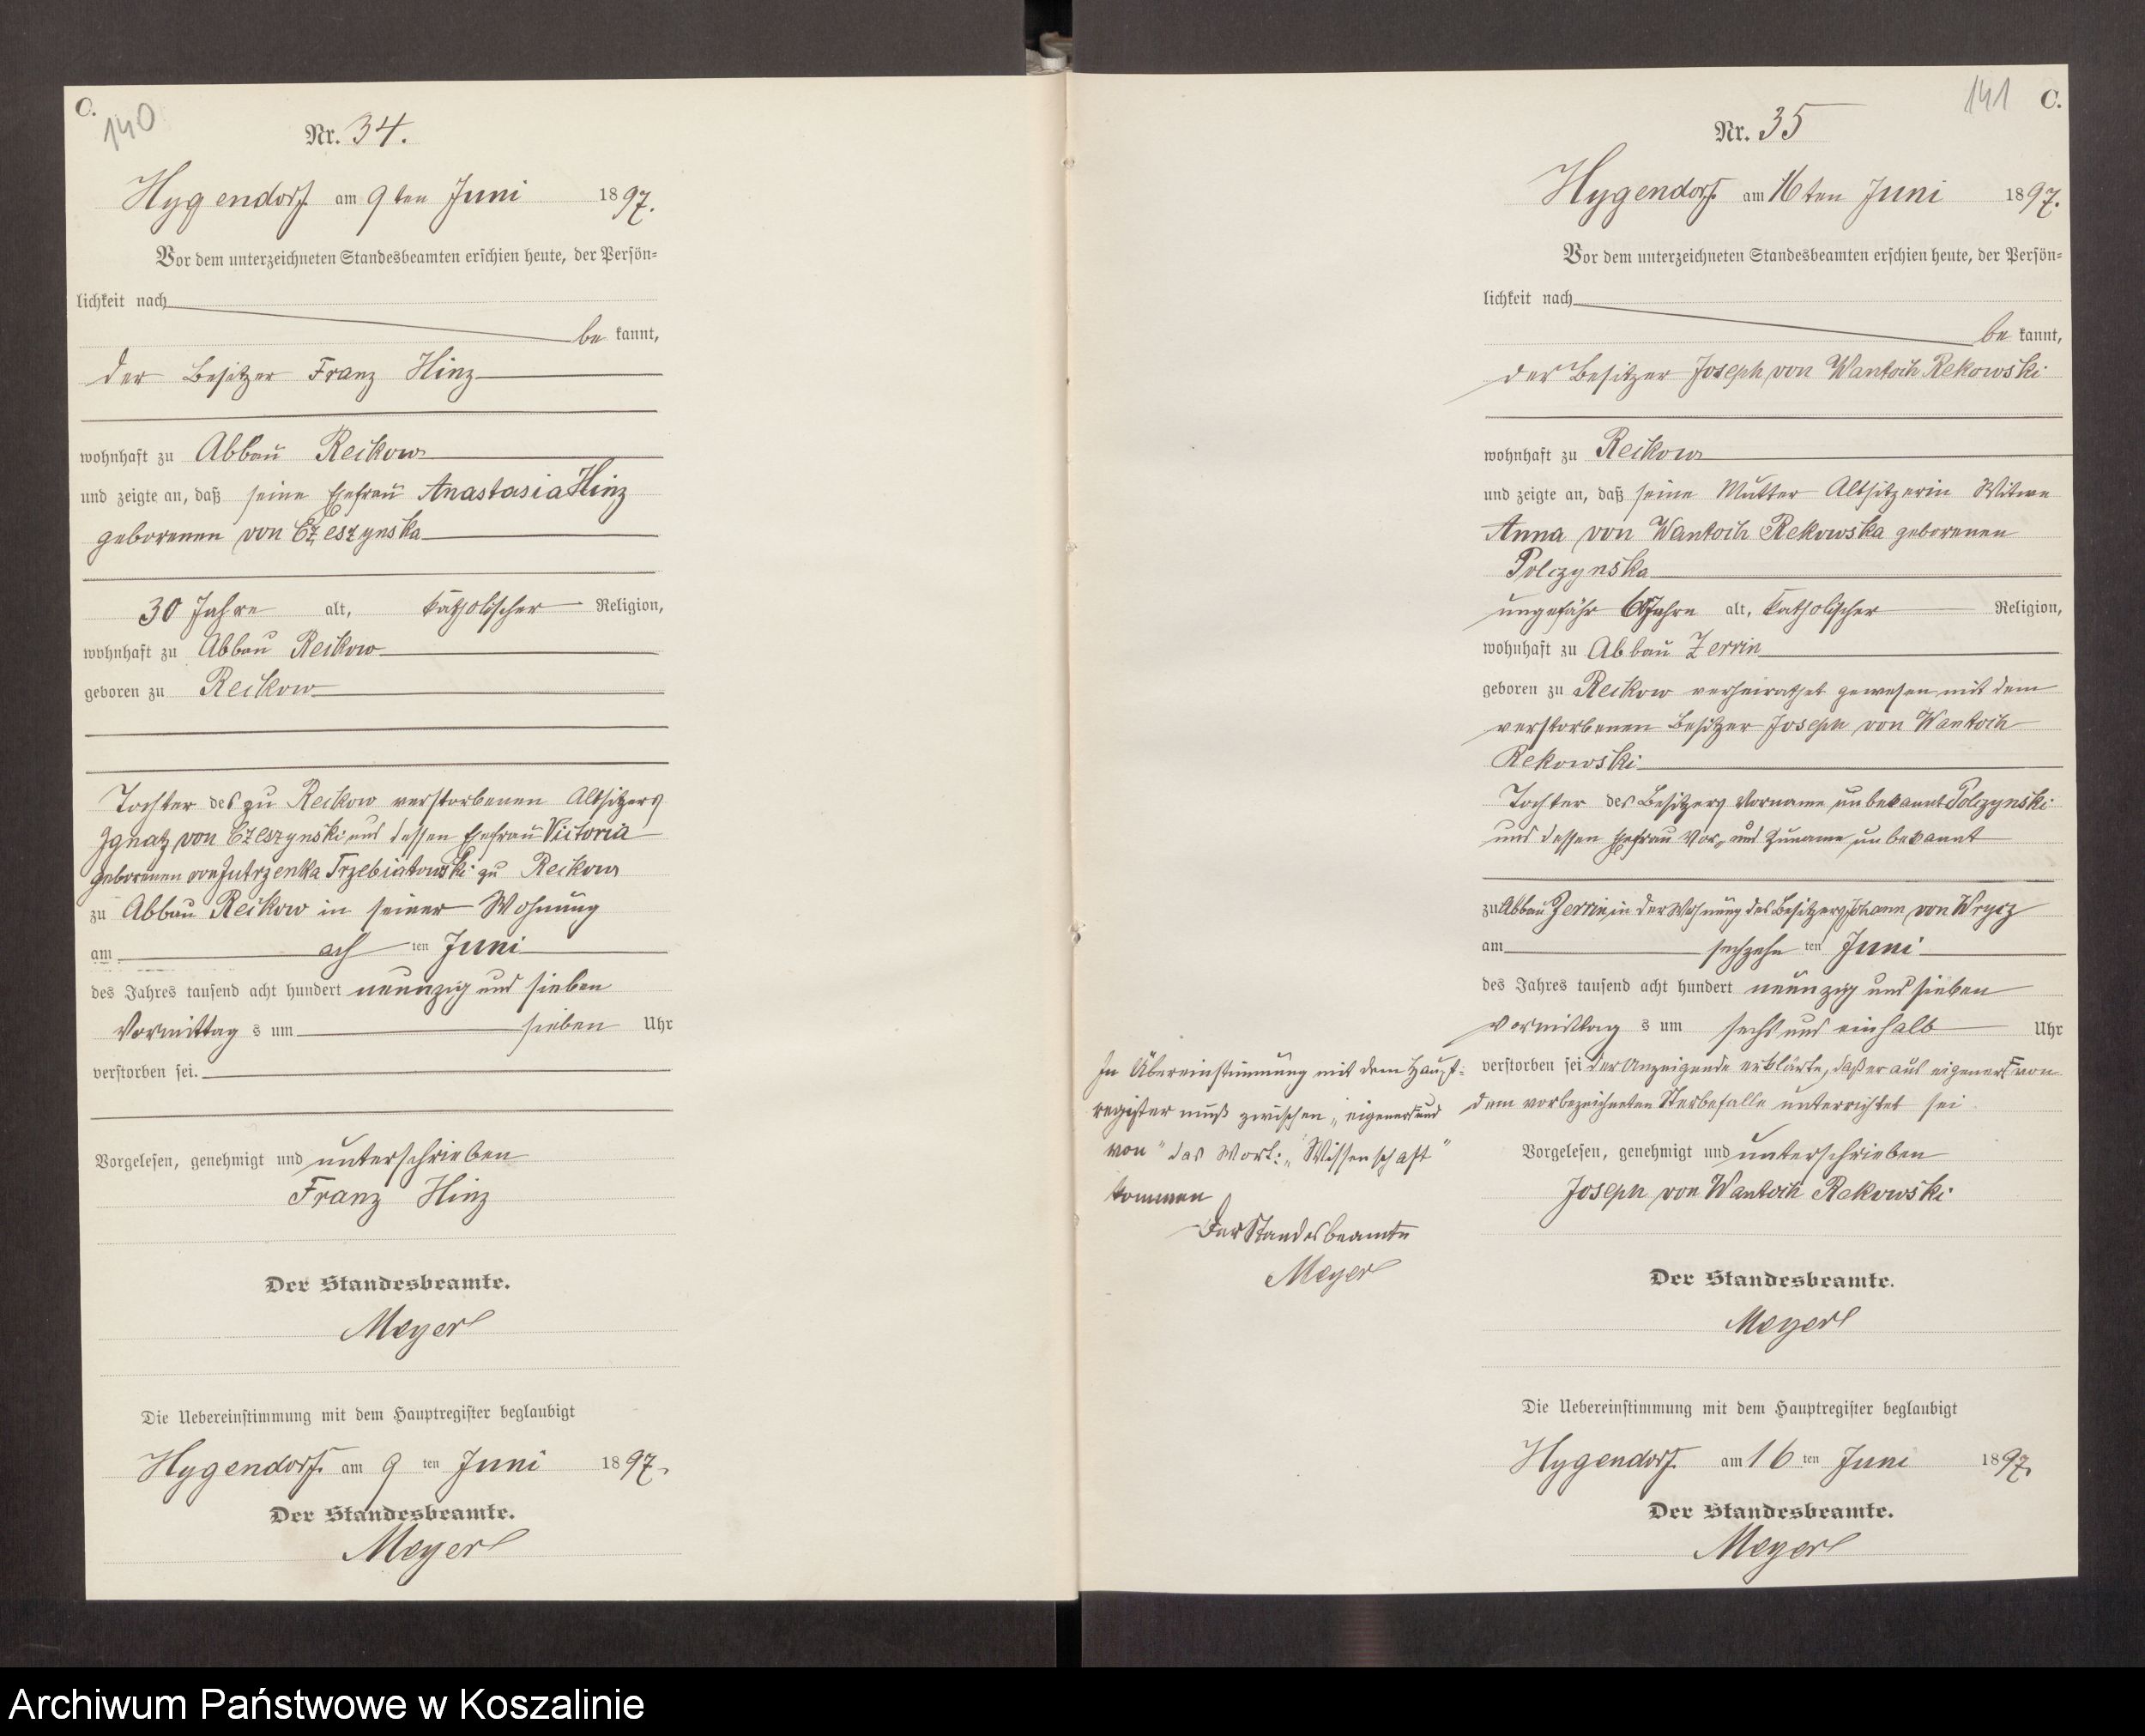 C.
140
Nr. 34.
Hygendorf am 9ten Juni 1897.
Vor dem unterzeichneten Standesbeamten erschien heute, der Persön=
lichkeit nach
be kannt,
der Besitzer Franz Hinz
wohnhaft zu Abbau Reckow
und zeigte an, daß seine Ehefrau Anastasia Hinz
geborenen von Czeszynska
30 Jahre alt, katholischer Religion,
wohnhaft zu Abbau Reckow
geboren zu Reckow
Tochter des zu Reckow verstorbenen Altsitzers
Ignatz von Czeszynski und dessen Ehefrau Victoria
geborenen von Jutrzenka Trzebiatowski zu Reckow
zu Abbau Reckow in seiner Wohnung
am ach ten Juni
des Jahres tausend acht hundert neunzig und sieben
Vormittag s um sieben Uhr
verstorben sei.
Vorgelesen, genehmigt und unterschrieben
Franz Hinz
Der Standesbeamte.
Meyer
Die Uebereinstimmung mit dem Hauptregister beglaubigt
Hygendorf am 9 ten Juni 1897.
Der Standesbeamte.
Meyer
141
C.
Nr. 35
Hygendorf am 16ten Juni 1897.
Vor dem unterzeichneten Standesbeamten erschien heute, der Persön=
lichkeit nach
be kannt,
der Besitzer Joseph von Wantoch Rekowski
wohnhaft zu Reckow
und zeigte an, daß seine Mutter Altsitzerin Witwe
Anna von Wantoch Rekowska geborenen
Polczynska
ungefähr Jahre alt, katholischer Religion,
wohnhaft zu Abbau Zerrin
geboren zu Reckow verheirathet gewesen mit dem
verstorbenen Besitzer Joseph von Wantoch
Rekowski
Tochter des Besitzers Vorname unbekannt Polczynski
und dessen Ehefrau Vor- und Zuname unbekannt
zu Abbau Zerrin, in der Wohnung des Besitzers Johann von Wrycz
am sechzehn ten Juni
des Jahres tausend acht hundert neunzig und sieben
vormittag s um sechs und einhalb Uhr
verstorben sei der Anzeigende erklärte, daß er aus eigener von
dem vorbezeichneten Sterbefalle unterrichtet sei
Vorgelesen, genehmigt und unterschrieben
Joseph von Wantoch Rekowski
Der Standesbeamte.
Meyer
Die Uebereinstimmung mit dem Hauptregister beglaubigt
Hygendorf am 16 ten Juni 1897.
Der Standesbeamte.
Meyer
In Übereinstimmung mit dem Haupt=
register muß zwischen „eigener und
von" das Wort: „Wissenschaft"
kommen
Der Standesbeamte
Meyer
Archiwum Państwowe w Koszalinie